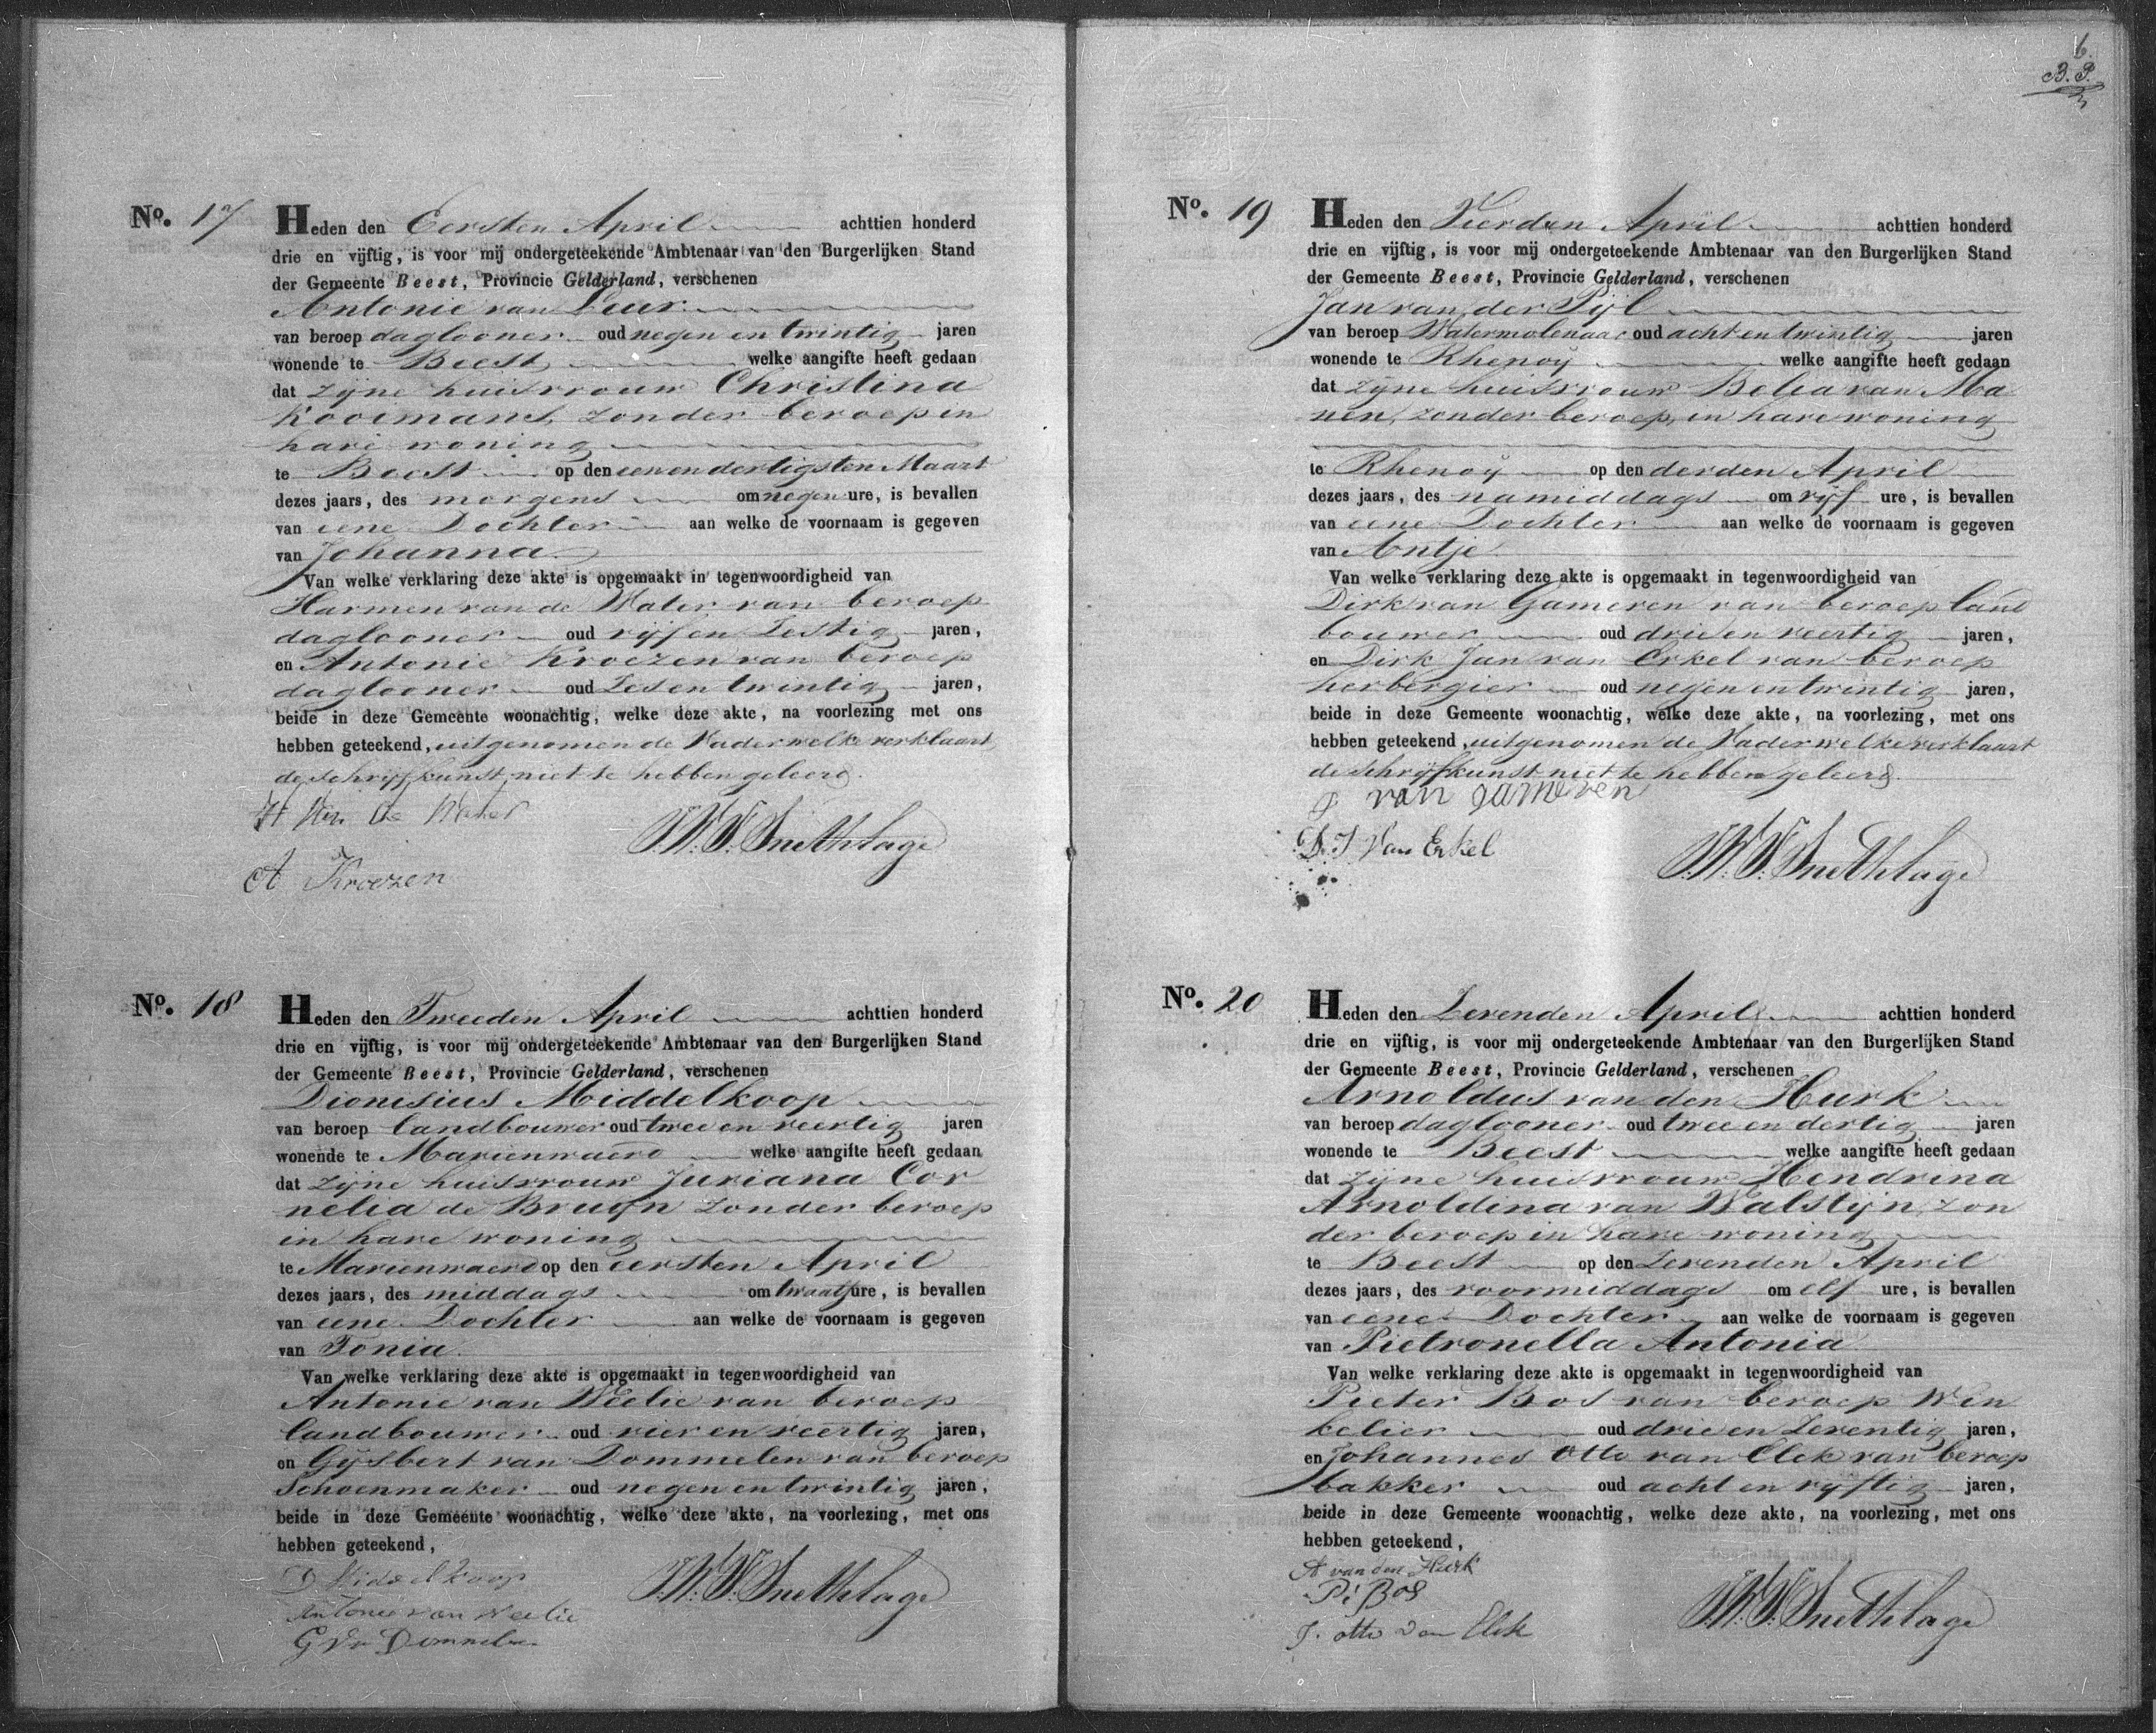 6.
B. P.
No. 17
Heden den Eersten April achttien honderd
drie en vijftig, is voor mij ondergeteekende Ambtenaar van den Burgerlijken Stand
der Gemeente Beest, Provincie Gelderland, verschenen
Antonie van Leur
van beroep daglooner oud negen en twintig jaren
wonende te Beest, welke aangifte heeft gedaan
dat zijne huisvrouw Christina
Kooimans, zonder beroep in
hare woning
te Beest op den eenendertigsten Maart
dezes jaars, des morgens om negen ure, is bevallen
van eene Dochter aan welke de voornaam is gegeven
van Johanna.
Van welke verklaring deze akte is opgemaakt in tegenwoordigheid van
Harmen van de Water van beroep
daglooner oud vijf en Zestig jaren,
en Antonie Kroezen van beroep
daglooner oud Zes en twintig jaren,
beide in deze Gemeente woonachtig, welke deze akte, na voorlezing met ons
hebben geteekend, uitgenomen de Vader welke verklaart
de schrijfkunst niet te hebben geleerd.
H Van de Water
J.W.F. Snethlage
A Kroezen
No. 18
Heden den Tweeden April achttien honderd
drie en vijftig, is voor mij ondergeteekende Ambtenaar van den Burgerlijken Stand
der Gemeente Beest, Provincie Gelderland, verschenen
Dionisius Middelkoop
van beroep landbouwer oud twee en veertig jaren
wonende te Marienwaerd welke aangifte heeft gedaan
dat zijne huisvrouw Juriana Cor
nelia de Bruijn zonder beroep
in hare woning
te Marienwaerd op den eersten April
dezes jaars, des middags om twaalf ure, is bevallen
van eene Dochter aan welke de voornaam is gegeven
van Tonia.
Van welke verklaring deze akte is opgemaakt in tegenwoordigheid van
Antonie van Weelie van beroep
landbouwer oud vier en veertig jaren,
en Gijsbert van Dommelen van beroep
Schoenmaker oud negen en twintig jaren,
beide in deze Gemeente woonachtig, welke deze akte, na voorlezing, met ons
hebben geteekend,
D Middelkoop
J.W.F. Snethlage
Antonie van Weelie
G Vn Dommelen
No. 19
Heden den Vierden April achttien honderd
drie en vijftig, is voor mij ondergeteekende Ambtenaar van den Burgerlijken Stand
der Gemeente Beest, Provincie Gelderland, verschenen
Jan van der Pijl
van beroep Watermolenaar oud acht en twintig jaren
wonende te Rhenoy welke aangifte heeft gedaan
dat zijne huisvrouw Belia van Ma
nen, zonder beroep, in hare woning
te Rhenoij op den derden April
dezes jaars, des namiddags om vijf ure, is bevallen
van eene Dochter aan welke de voornaam is gegeven
van Antje.
Van welke verklaring deze akte is opgemaakt in tegenwoordigheid van
Dirk van Gameren van beroep land
bouwer oud drie en veertig jaren,
en Dirk Jan van Erkel van beroep
herbergier oud negen en twintig jaren,
beide in deze Gemeente woonachtig, welke deze akte, na voorlezing, met ons
hebben geteekend, uitgenomen de Vader welke verklaart
de schrijfkunst niet te hebben geleerd.
van gameren
D. J Van Erkel
J.W.F. Snethlage
No. 20
Heden den Zevenden April achttien honderd
drie en vijftig, is voor mij ondergeteekende Ambtenaar van den Burgerlijken Stand
der Gemeente Beest, Provincie Gelderland, verschenen
Arnoldus van den Hurk
van beroep daglooner oud twee en dertig jaren
wonende te Beest welke aangifte heeft gedaan
dat zijne huisvrouw Hendrina
Arnoldina van Walstijn, zon
der beroep in hare woning
te Beest op den Zevenden April
dezes jaars, des voormiddags om elf ure, is bevallen
van eene Dochter aan welke de voornaam is gegeven
van Pietronella Antonia
Van welke verklaring deze akte is opgemaakt in tegenwoordigheid van
Pieter Bos van beroep Win
kelier oud drie en Zeventig jaren,
en Johannes Otto van Elek van beroep
bakker oud acht en vijftig jaren,
beide in deze Gemeente woonachtig, welke deze akte, na voorlezing, met ons
hebben geteekend,
A van den Hurk
P: Bos
J.W.F. Snethlage
J. otto van Elek